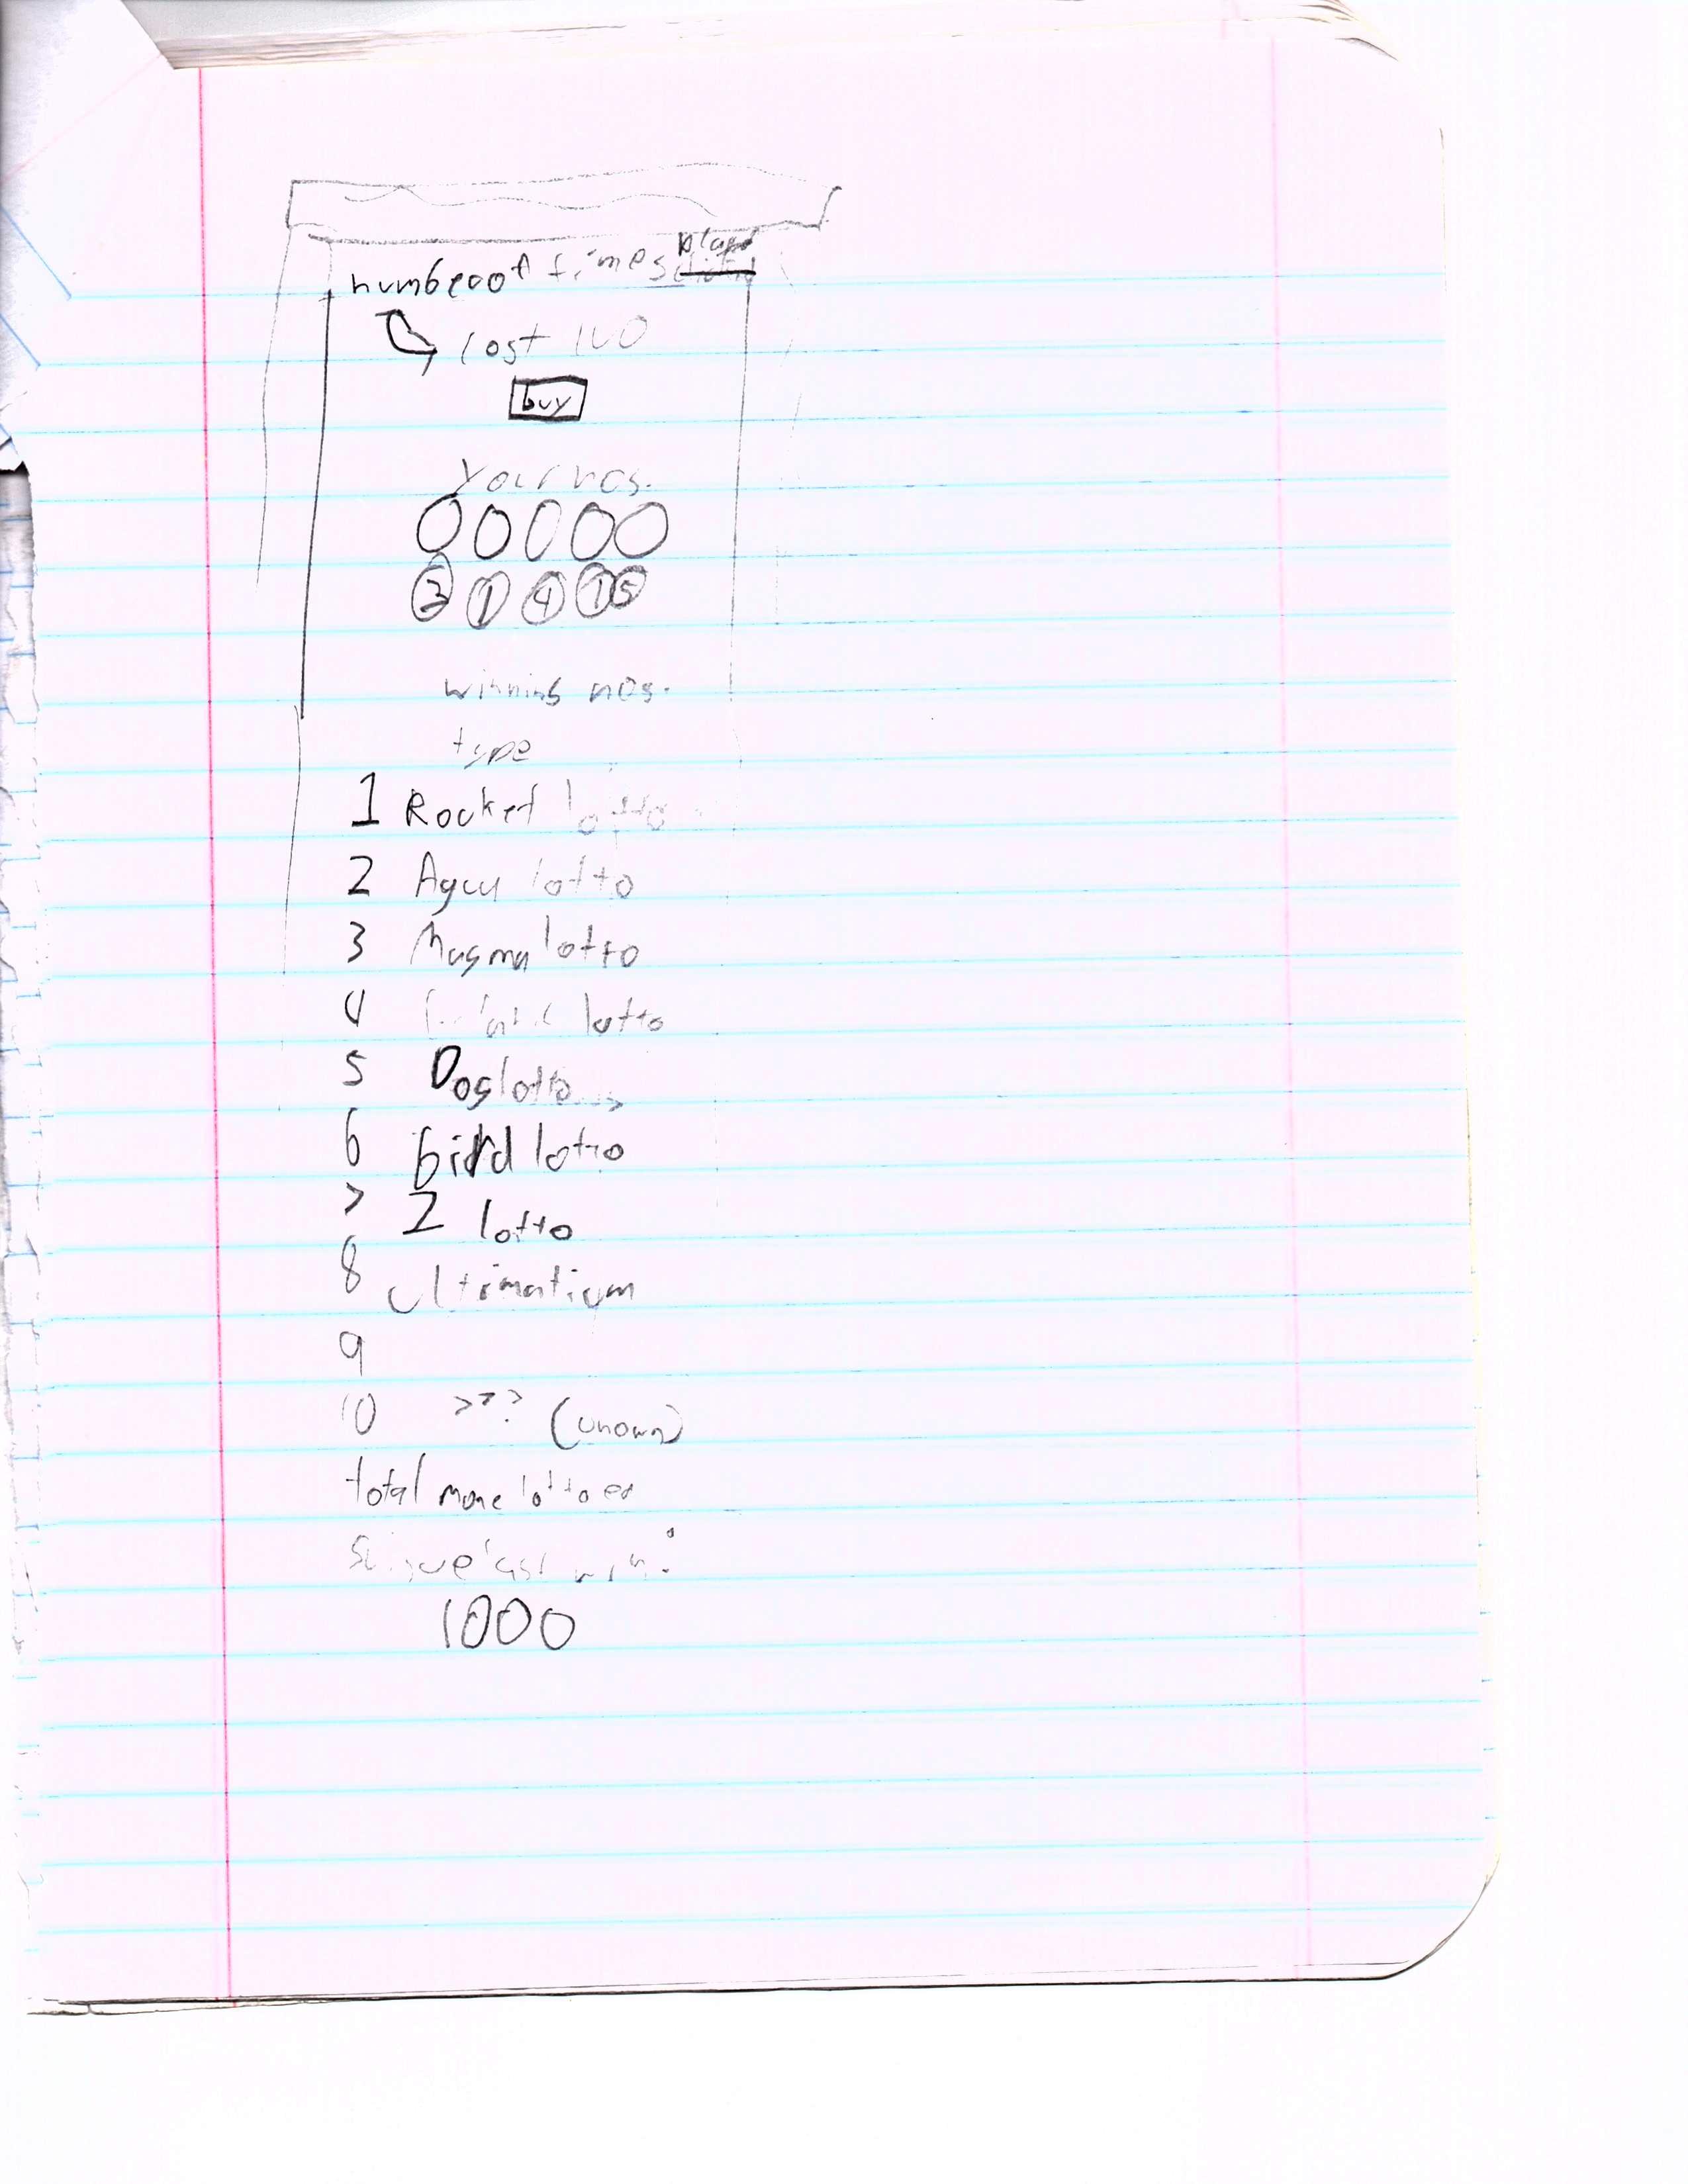 number of times played
cost 100
buy
Your nos.
3 1 4 7 5
winning nos.
type
1 Rocket lotto
2 Aqua lotto
3 Magma lotto
4 lotto
5 Dog lotto
6 bird lotto
7 Z lotto
8 ultimatium
9
10 ??? (unown)
total mone lottoed
last win:
1000